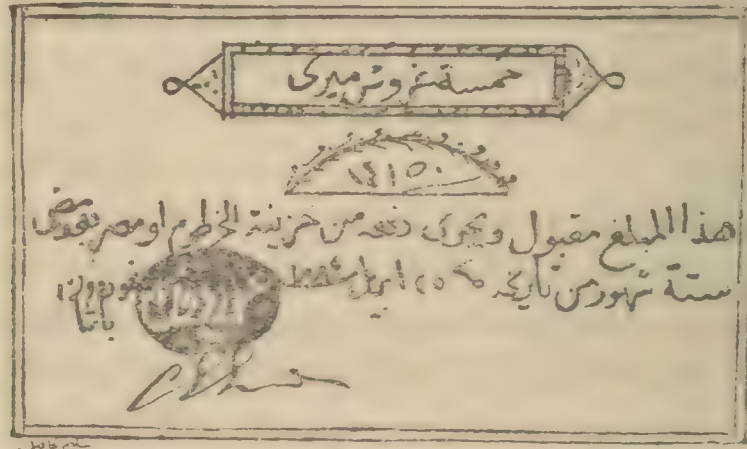 خمسة غروش ميرى
١٤١٥٠
هذا المبلغ مقبول ويجرى دفعه من خزينة الخرطوم او مصر بعد مضى
ستة شهور من تاريخه ٢٥ ابريل سنة غوردون
باشا